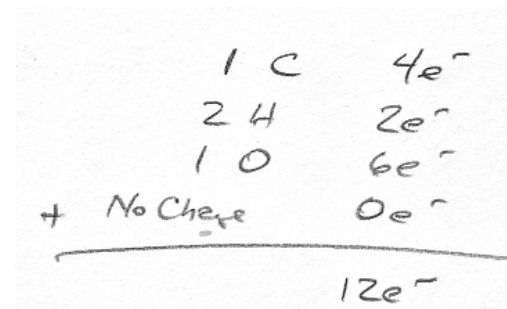 1 C 4e⁻
2 H 2e⁻
1 O 6e⁻
+ No Charge 0e⁻
12e⁻